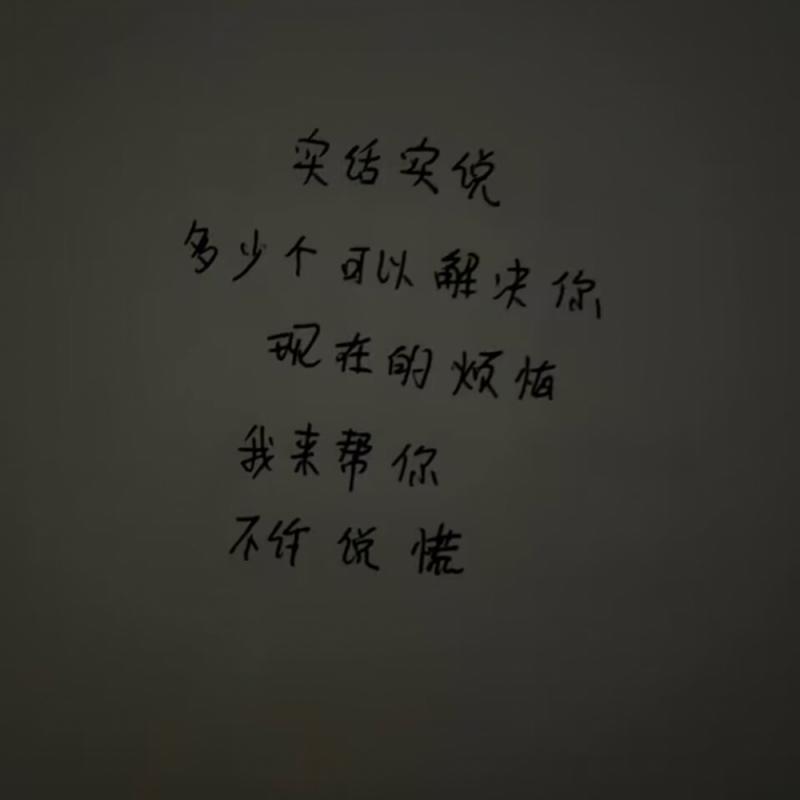 实话实说
多少个可以解决你
现在的烦恼
我来帮你
不许说慌